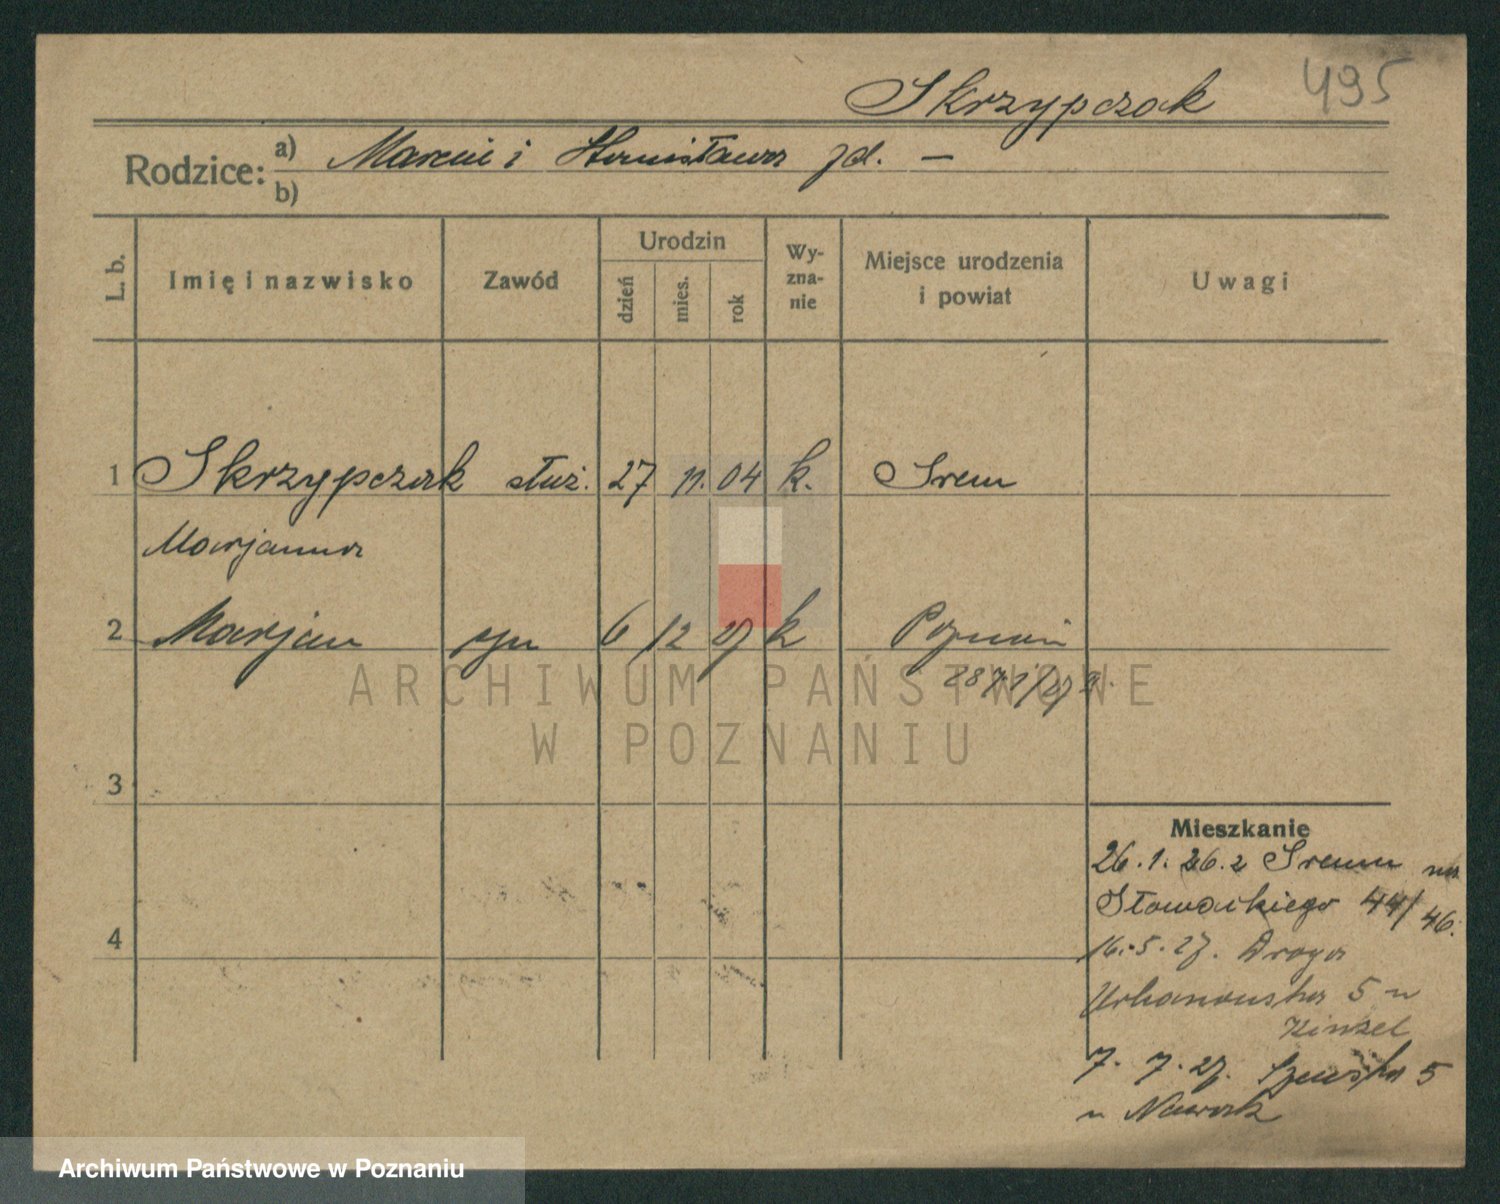 Skrzypczak 495
Rodzice: a) Marcin i Stanisława jd. —
b)
L. b. Imię i nazwisko Zawód Urodzin dzień mies. rok Wy-zna-nie Miejsce urodzenia i powiat Uwagi
1 Skrzypczak służ. 27 11. 04 k. Srem
Marjanna
2 Marjan syn 6 12 27 k Poznań
2871/27
ARCHIWUM PAŃSTWOWE
W POZNANIU
3
Mieszkanie
26.1.26. z Sremu na
Słowackiego 44/46.
4
16.5.27. Droga
Urbanowska 5 u
Kinzel
7. 7. 27. Szewska 5
u Nowak
Archiwum Państwowe w Poznaniu